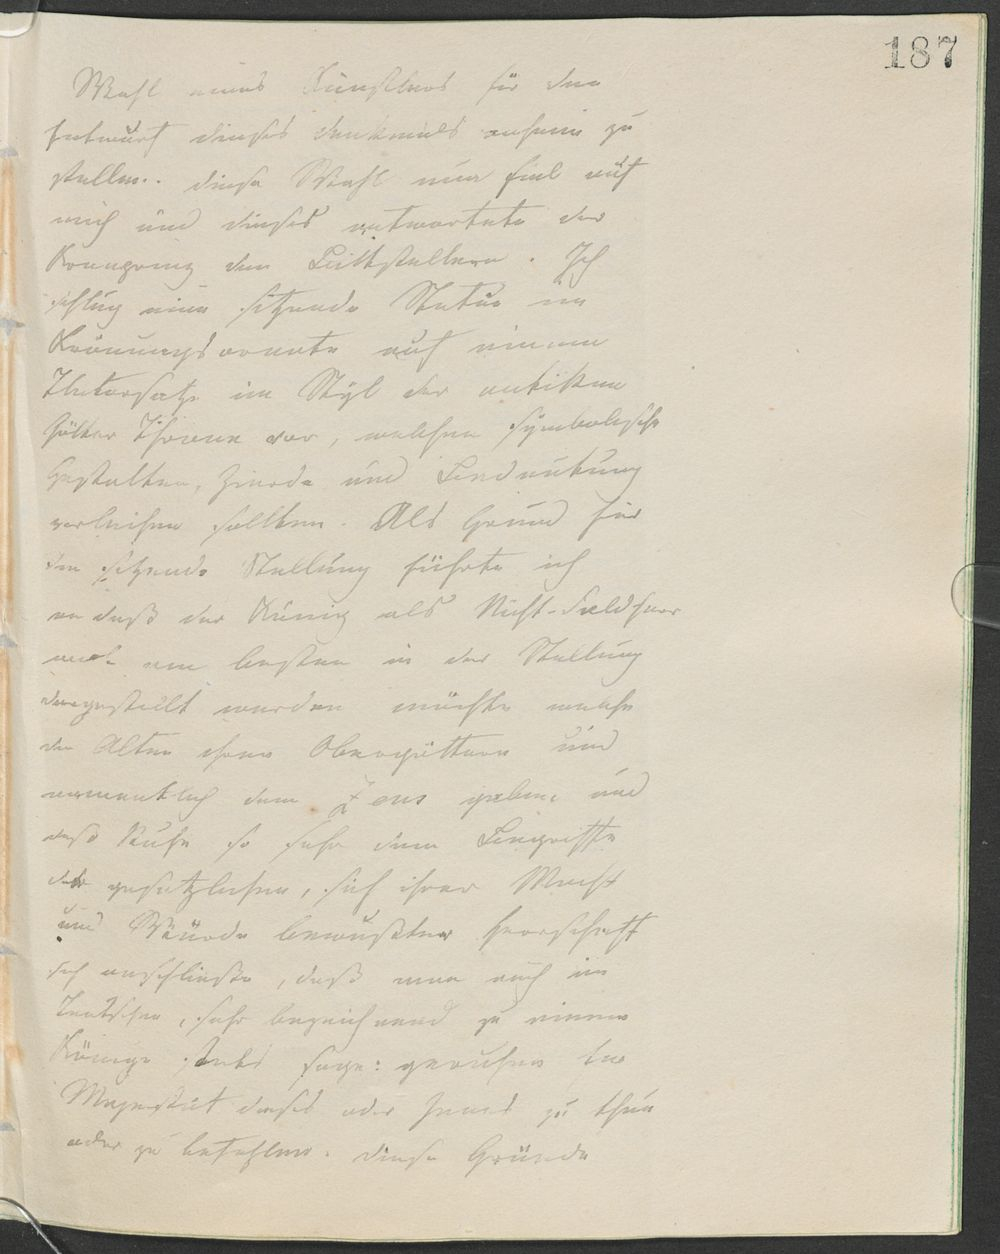 187
Wahl eines Künstlers für den
Entwurf dieses Denkmals anheim zu
stellen. diese Wahl nun fiel auf
mich und dieses antwortete der
Kronprinz den Bittstellern. Ich
schlug eine sitzende Statue im
Krönungsornate auf einem
Untersatze im Styl der antiken
Götter Throne vor, welchen symbolische
Gestalten, Zierde und Bedeutung
verleihen sollten. Als Grund für
die sitzende Stellung führte ich
an daß der König als Nicht-Feldherr
wol am besten in der Stellung
dargestellt werden möchte welche
die Alten ihren Obergöttern und
namentlich dem Zeus gaben, und
daß Ruhe so sehr dem Begriffe
der gesetzlichen, sich ihrer Macht
und Würde bewußten Herrschaft
sich anschließe, daß man auch im
Teutschen, sehr bezeichnend zu einem
Könige stets sage: geruhen Eure
Majestät dieses oder Jenes zu thun
oder zu befehlen. diese Gründe